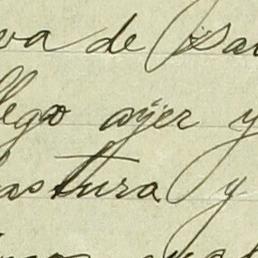 va de Sa
llego ayer y
astura y